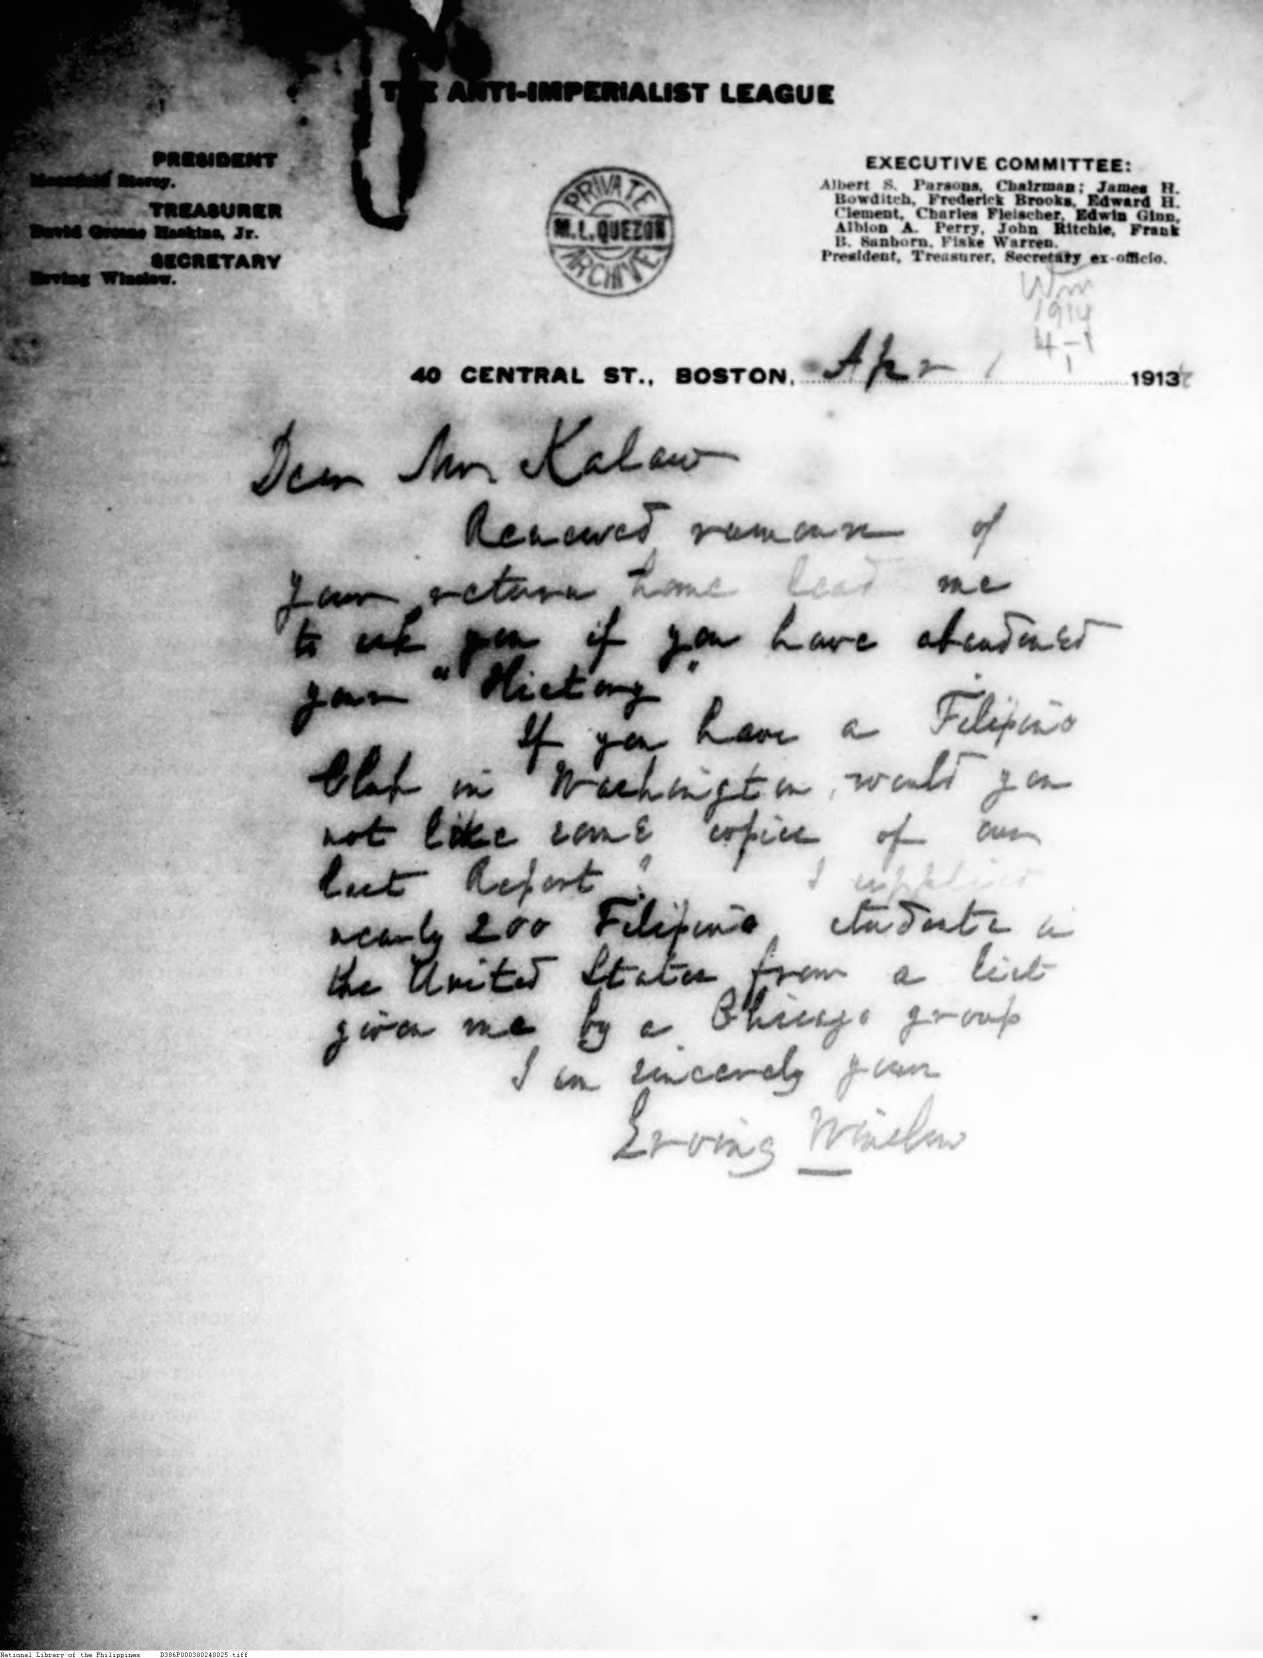 THE ANTI-IMPERIALIST LEAGUE
PRESIDENT
Moorfield Storey.
TREASURER
David Greene Haskins, Jr.
SECRETARY
Erving Winslow.
PRIVATE
M. L. QUEZON
ARCHIVE
EXECUTIVE COMMITTEE:
Albert S. Parsons, Chairman; James H.
Bowditch, Frederick Brooks, Edward H.
Clement, Charles Fleischer, Edwin Ginn,
Albion A. Perry, John Ritchie, Frank
B. Sanborn, Fiske Warren.
President, Treasurer, Secretary ex-officio.
1914
4-1
40 CENTRAL ST., BOSTON, Apr 1 1913
Dear Mr Kalaw
Renewed rumours of
your return home lead me
to ask you if you have abandoned
your "History"
If you have a Filipino
Club in Washington, would you
not like some copies of our
last Report? I supplied
nearly 200 Filipino students in
the United States from a list
given me by a Chicago group
I am sincerely yours
Erving Winslow
National Library of the Philippines D386P000380240025.tiff